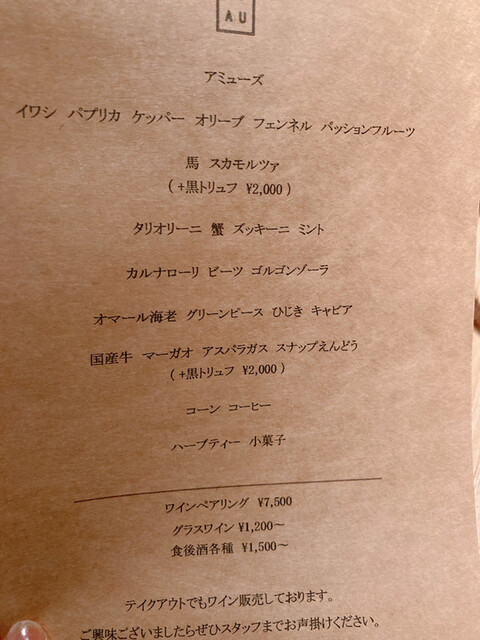 AU
アミューズ
イワシ パプリカ ケッパー オリーブ フェンネル パッションフルーツ
馬 スカモルツァ
(+黒トリュフ ¥2,000)
タリオリーニ 蟹 ズッキーニ ミント
カルナローリ ビーツ ゴルゴンゾーラ
オマール海老 グリーンピース ひじき キャビア
国産牛 マーガオ アスパラガス スナップえんどう
(+黒トリュフ ¥2,000)
コーン コーヒー
ハーブティー 小菓子
ワインペアリング ¥7,500
グラスワイン ¥1,200〜
食後酒各種 ¥1,500〜
テイクアウトでもワイン販売しております。
ご興味ございましたらぜひスタッフまでお声掛けください。